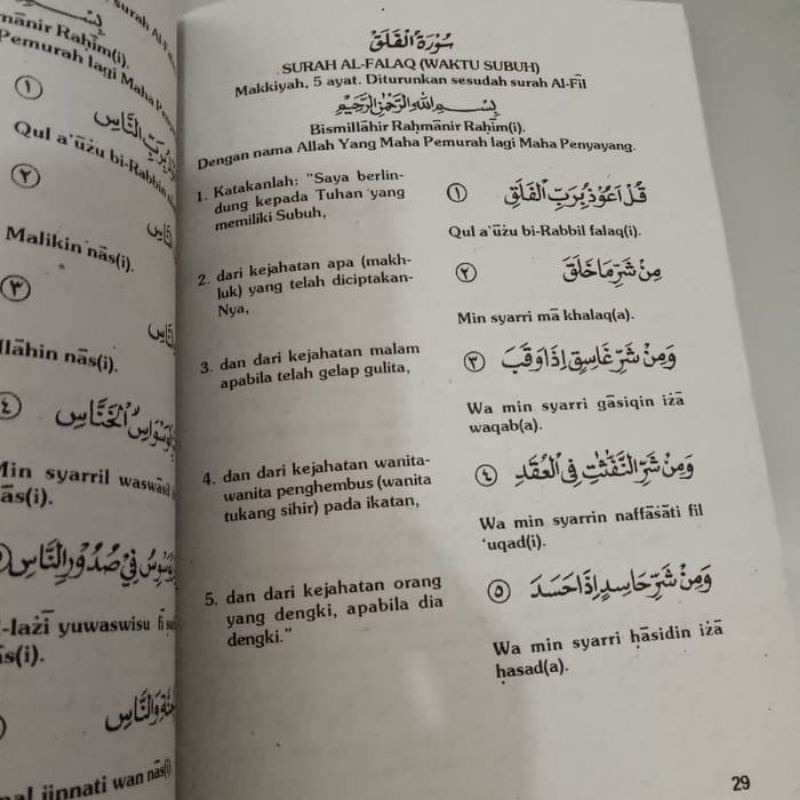 بِسْمِ
سورة ال
mānir Raḥīm(i).
Pemurah lagi Maha
١
بِرَبِّ النَّاسِ
Qul a'ūżu bi-Rabbin
٢
النَّاسِ
Malikin nās(i).
٣
النَّاسِ
llāhin nās(i).
٤
الْوَسْوَاسِ الْخَنَّاسِ
Min syarril waswāsil
ās(i).
يُوَسْوِسُ فِيْ صُدُوْرِ النَّاسِ
l-lażī yuwaswisu fī
s(i).
وَالنَّاسِ
jinnati wan nās(i).
سُوْرَةُ الْفَلَقِ
SURAH AL-FALAQ (WAKTU SUBUH)
Makkiyah, 5 ayat. Diturunkan sesudah surah Al-Fīl
بِسْمِ اللّٰهِ الرَّحْمٰنِ الرَّحِيْمِ
Bismillāhir Raḥmānir Raḥīm(i).
Dengan nama Allah Yang Maha Pemurah lagi Maha Penyayang.
1. Katakanlah: "Saya berlin-
dung kepada Tuhan yang
memiliki Subuh,
١ قُلْ اَعُوْذُ بِرَبِّ الْفَلَقِ
Qul a'ūżu bi-Rabbil falaq(i).
2. dari kejahatan apa (makh-
luk) yang telah diciptakan-
Nya,
٢ مِنْ شَرِّ مَا خَلَقَ
Min syarri mā khalaq(a).
3. dan dari kejahatan malam
apabila telah gelap gulita,
٣ وَمِنْ شَرِّ غَاسِقٍ اِذَا وَقَبَ
Wa min syarri gāsiqin iżā
waqab(a).
4. dan dari kejahatan wanita-
wanita penghembus (wanita
tukang sihir) pada ikatan,
٤ وَمِنْ شَرِّ النَّفّٰثٰتِ فِى الْعُقَدِ
Wa min syarrin naffāṡāti fil
'uqad(i).
5. dan dari kejahatan orang
yang dengki, apabila dia
dengki."
٥ وَمِنْ شَرِّ حَاسِدٍ اِذَا حَسَدَ
Wa min syarri ḥāsidin iżā
ḥasad(a).
29